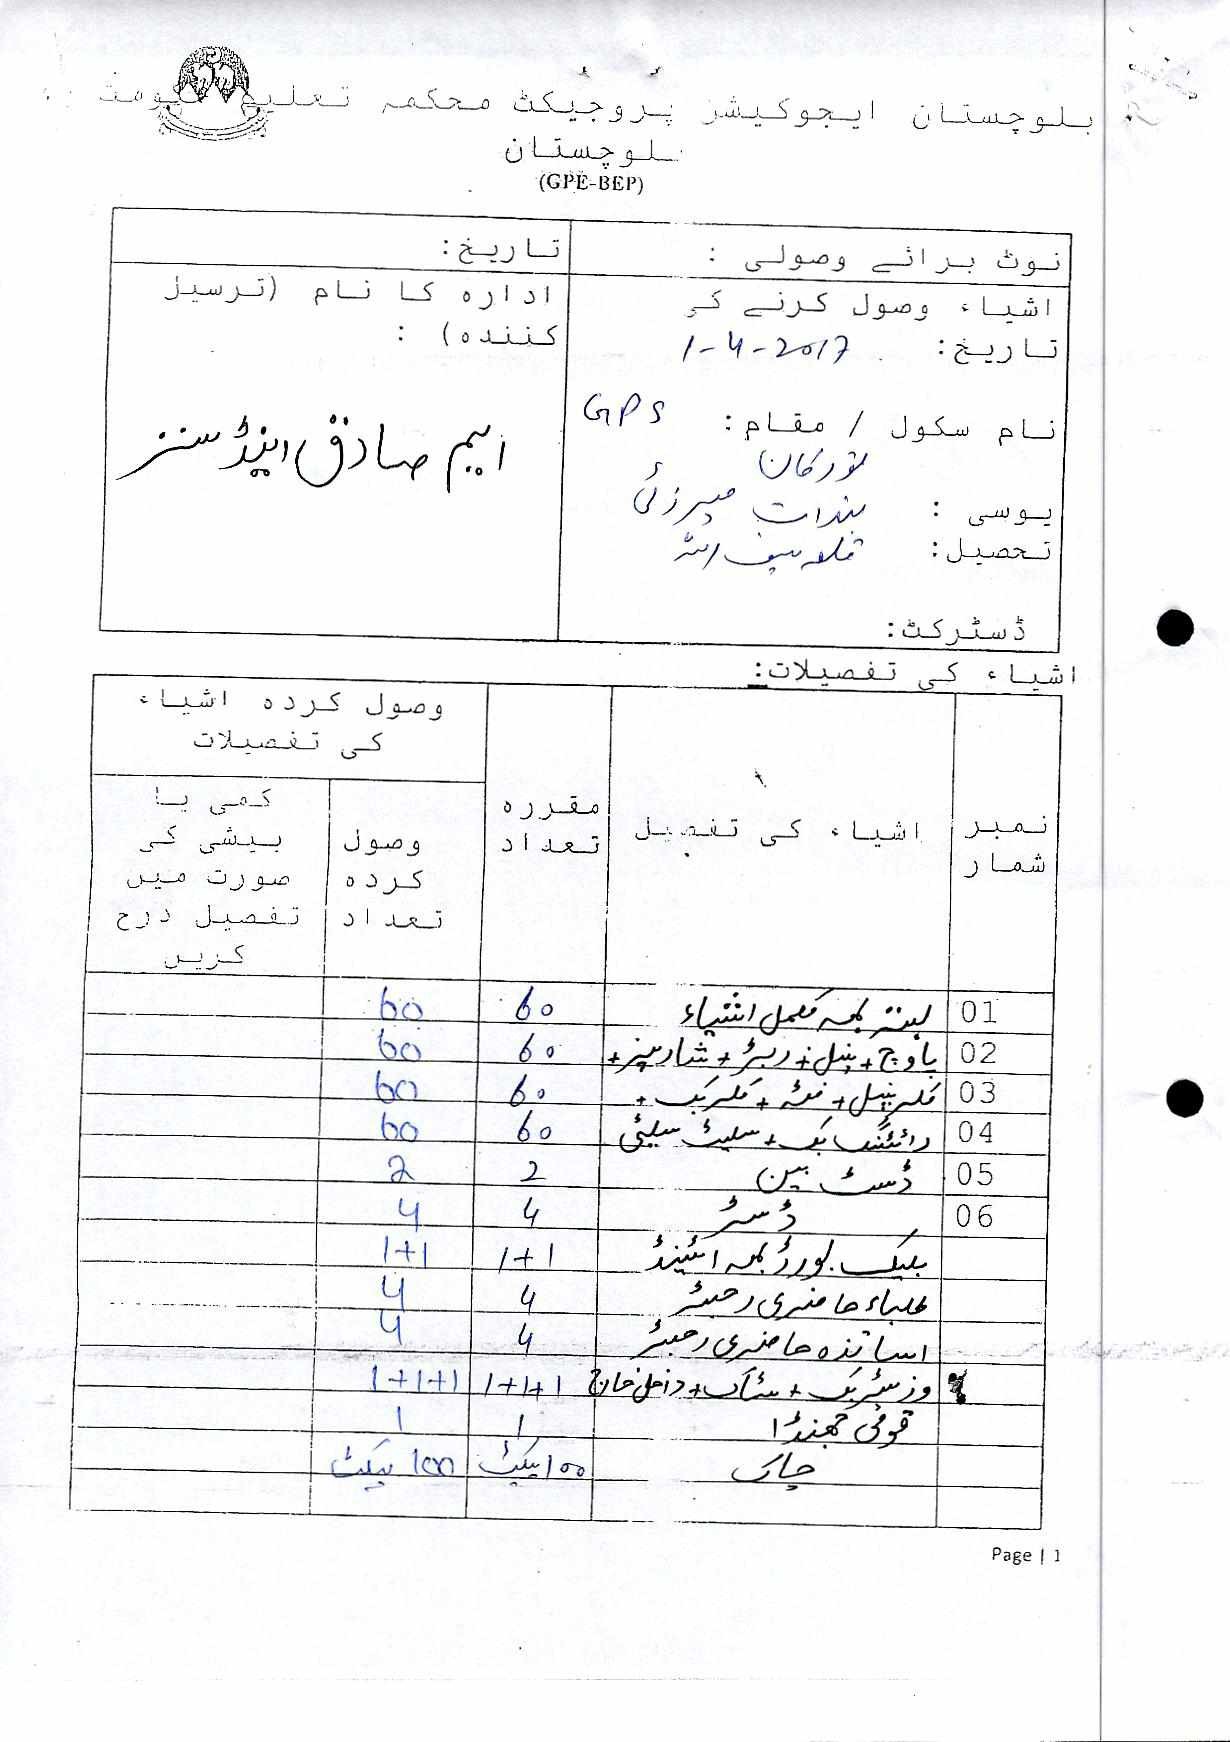 بلوچستان ایجوکیشن پروجیکٹ محکمہ تعلیم
بلوچستان
(GPE-BEP)
نوٹ برائے وصولی :
تاریخ:
اشیاء وصول کرنے کی
تاریخ: 1-4-2017
نام سکول / مقام: GPS
یوسی :
تحصیل: قلعہ سیف اللہ
ڈسٹرکٹ:
ادارہ کا نام (ترسیل
کنندہ) :
ایم صادق اینڈ سنز
اشیاء کی تفصیلات:
نمبر شمار
اشیاء کی تفصیل
مقررہ تعداد
وصول کردہ اشیاء
کی تفصیلات
وصول کردہ تعداد
کمی یا بیشی کی صورت میں تفصیل درج کریں
01 بستہ بمعہ مکمل اشیاء 60 60
02 + پنسل + ربڑ + شارپنر + 60 60
03 کلر پنسل + فٹہ + کلر بک + 60 60
04 رائٹنگ بک + سلیٹ سلیٹی 60 60
05 ڈسٹ بین 2 2
06 ڈسٹر 4 4
بلیک بورڈ بمعہ اسٹینڈ 1+1 1+1
طلباء حاضری رجسٹر 4 4
اساتذہ حاضری رجسٹر 4 4
وزیٹر بک + سٹاک + داخل خارج 1+1+1 1+1+1
قومی جھنڈا 1 1
چاک 100 پیکٹ 100 پیکٹ
Page | 1